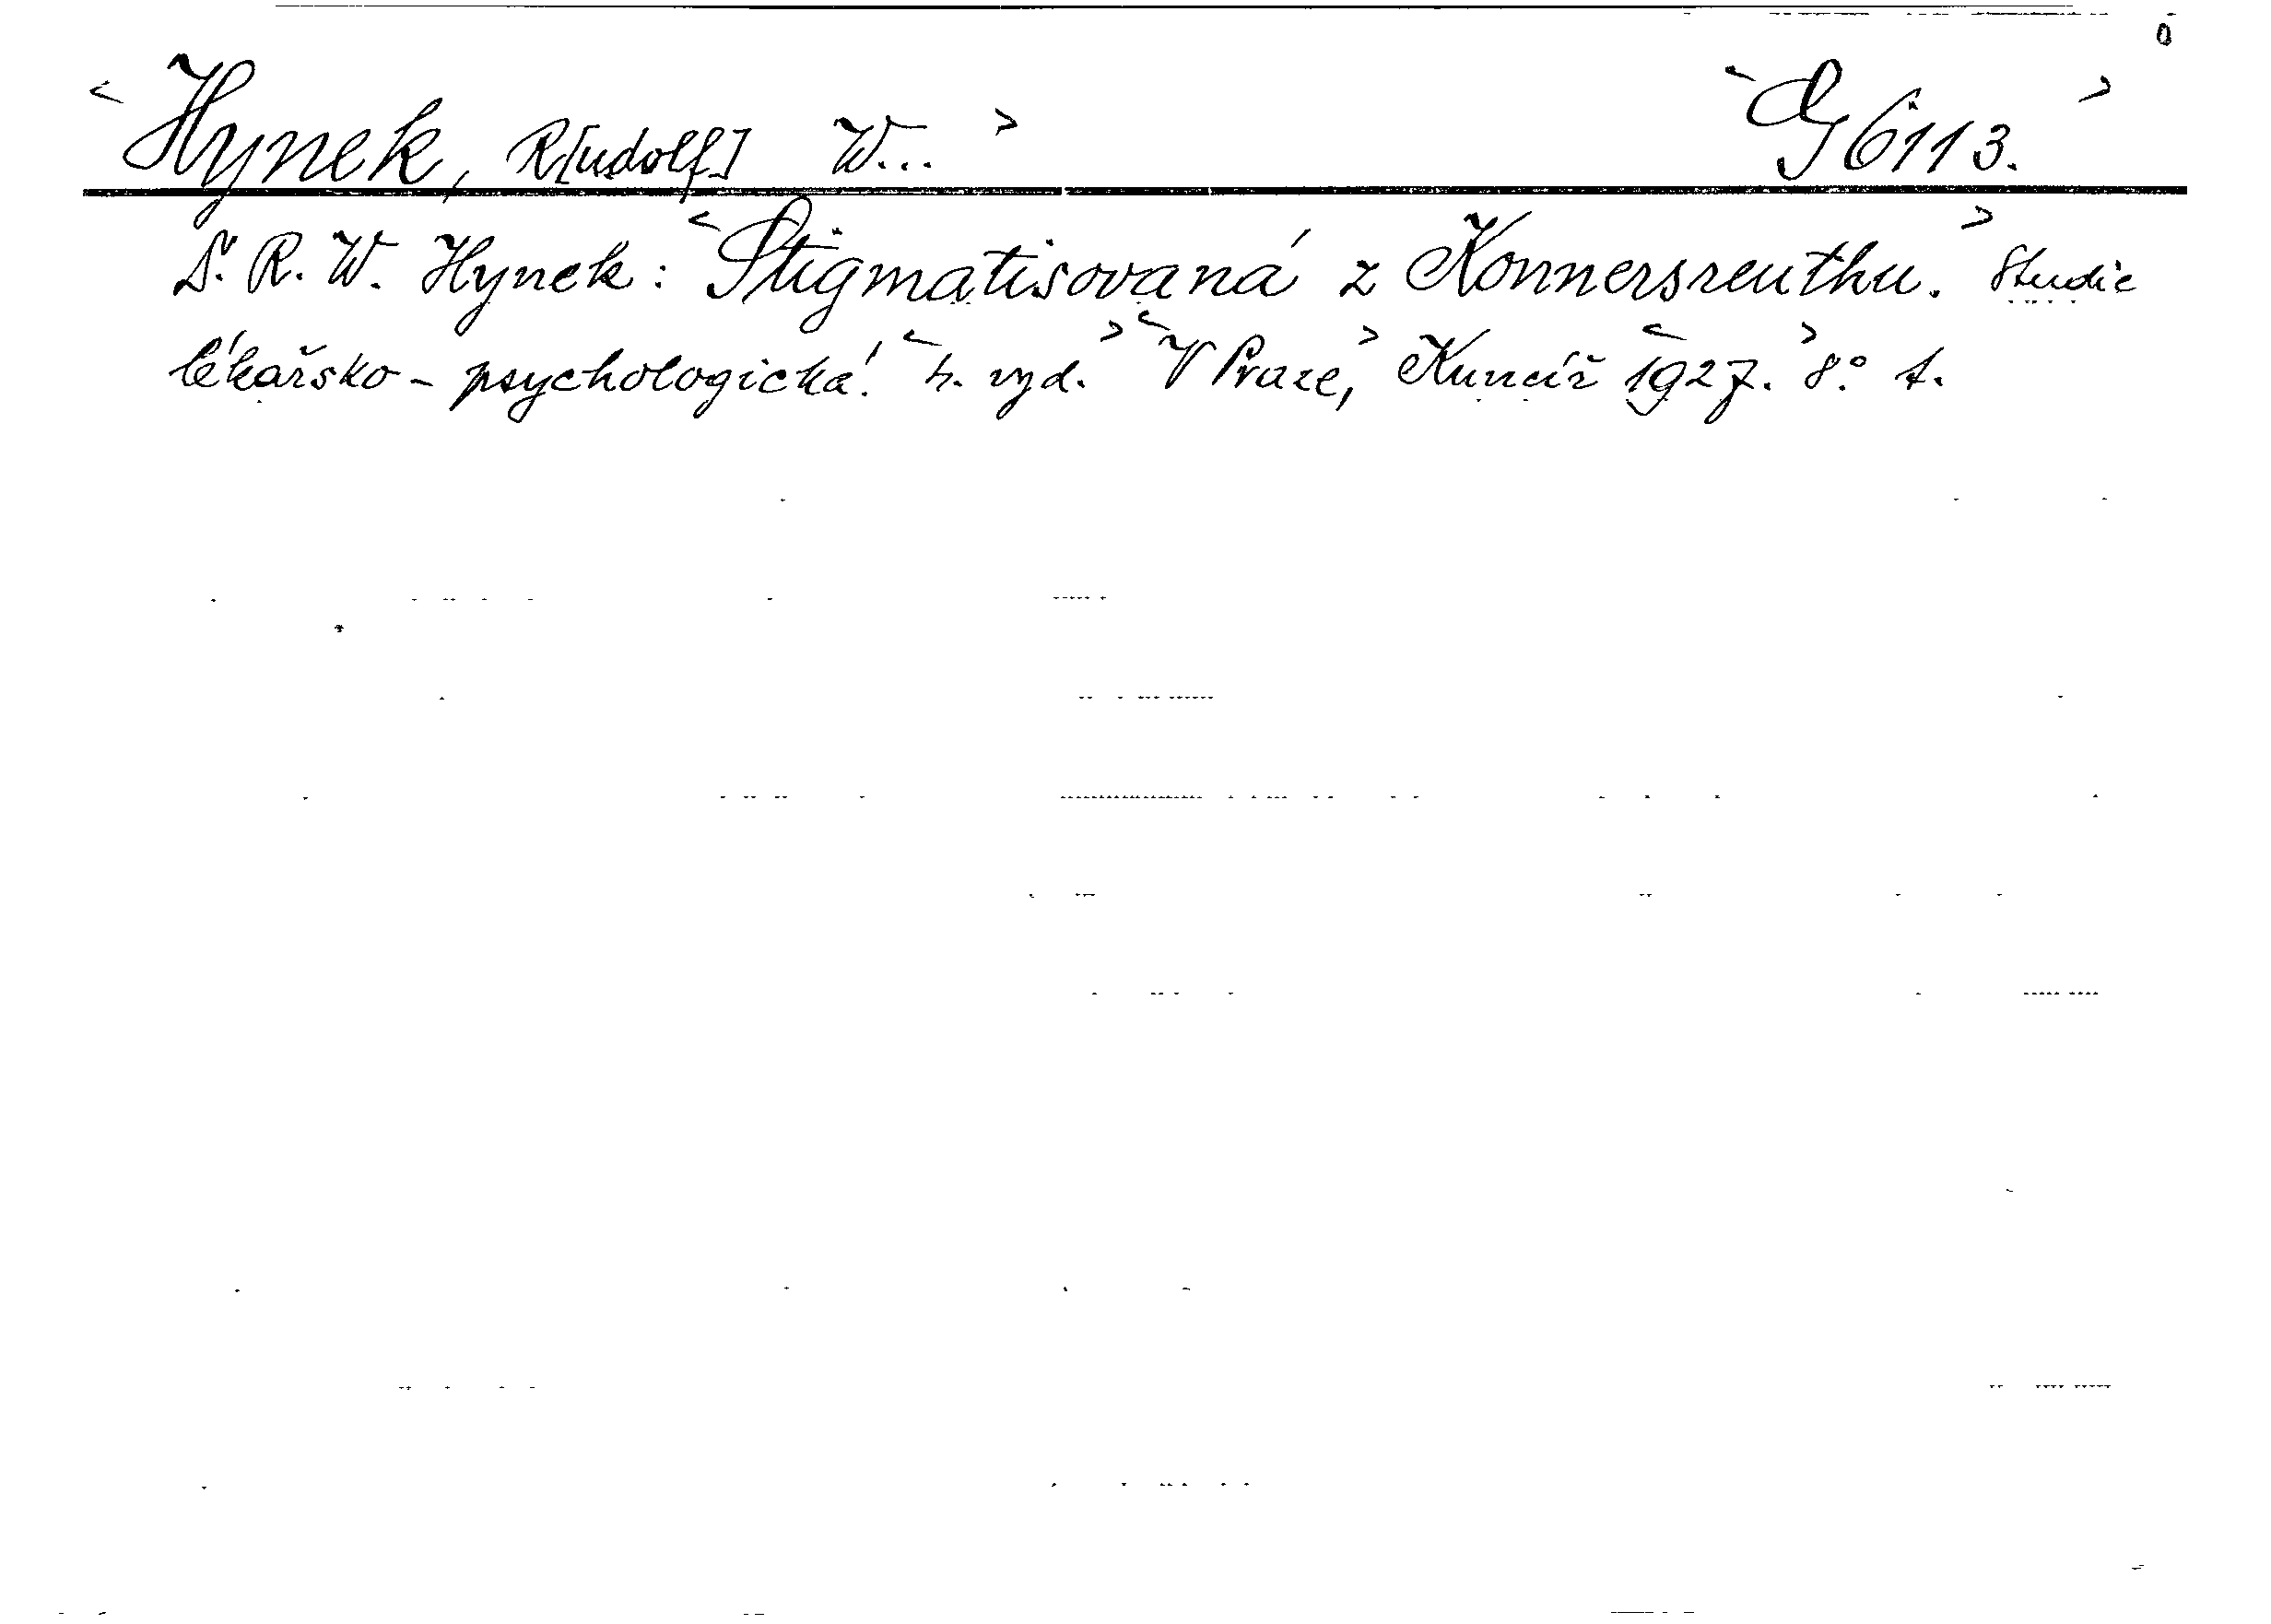 < Hynek, R[udolf] W... > < G 6113. >
Dr. R. W. Hynek: < Stigmatisovaná z Konnersreuthu. > Studie
lékařsko - psychologická. < 4. vyd. > < V Praze, > Kuncíř < 1927. > 8° A.